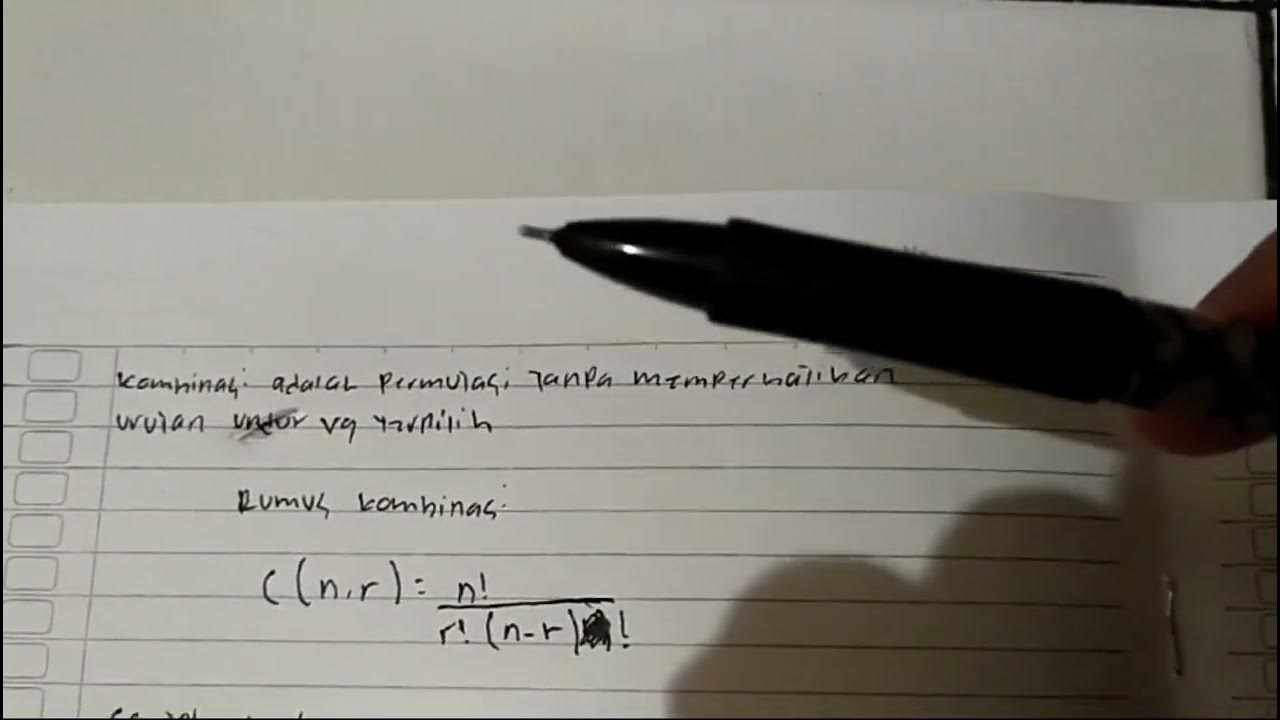 Kombinasi adalah Permutasi Tanpa memperhatikan
urutan yg terpilih
Rumus kombinasi
C(n,r) = n!
r! (n-r)!